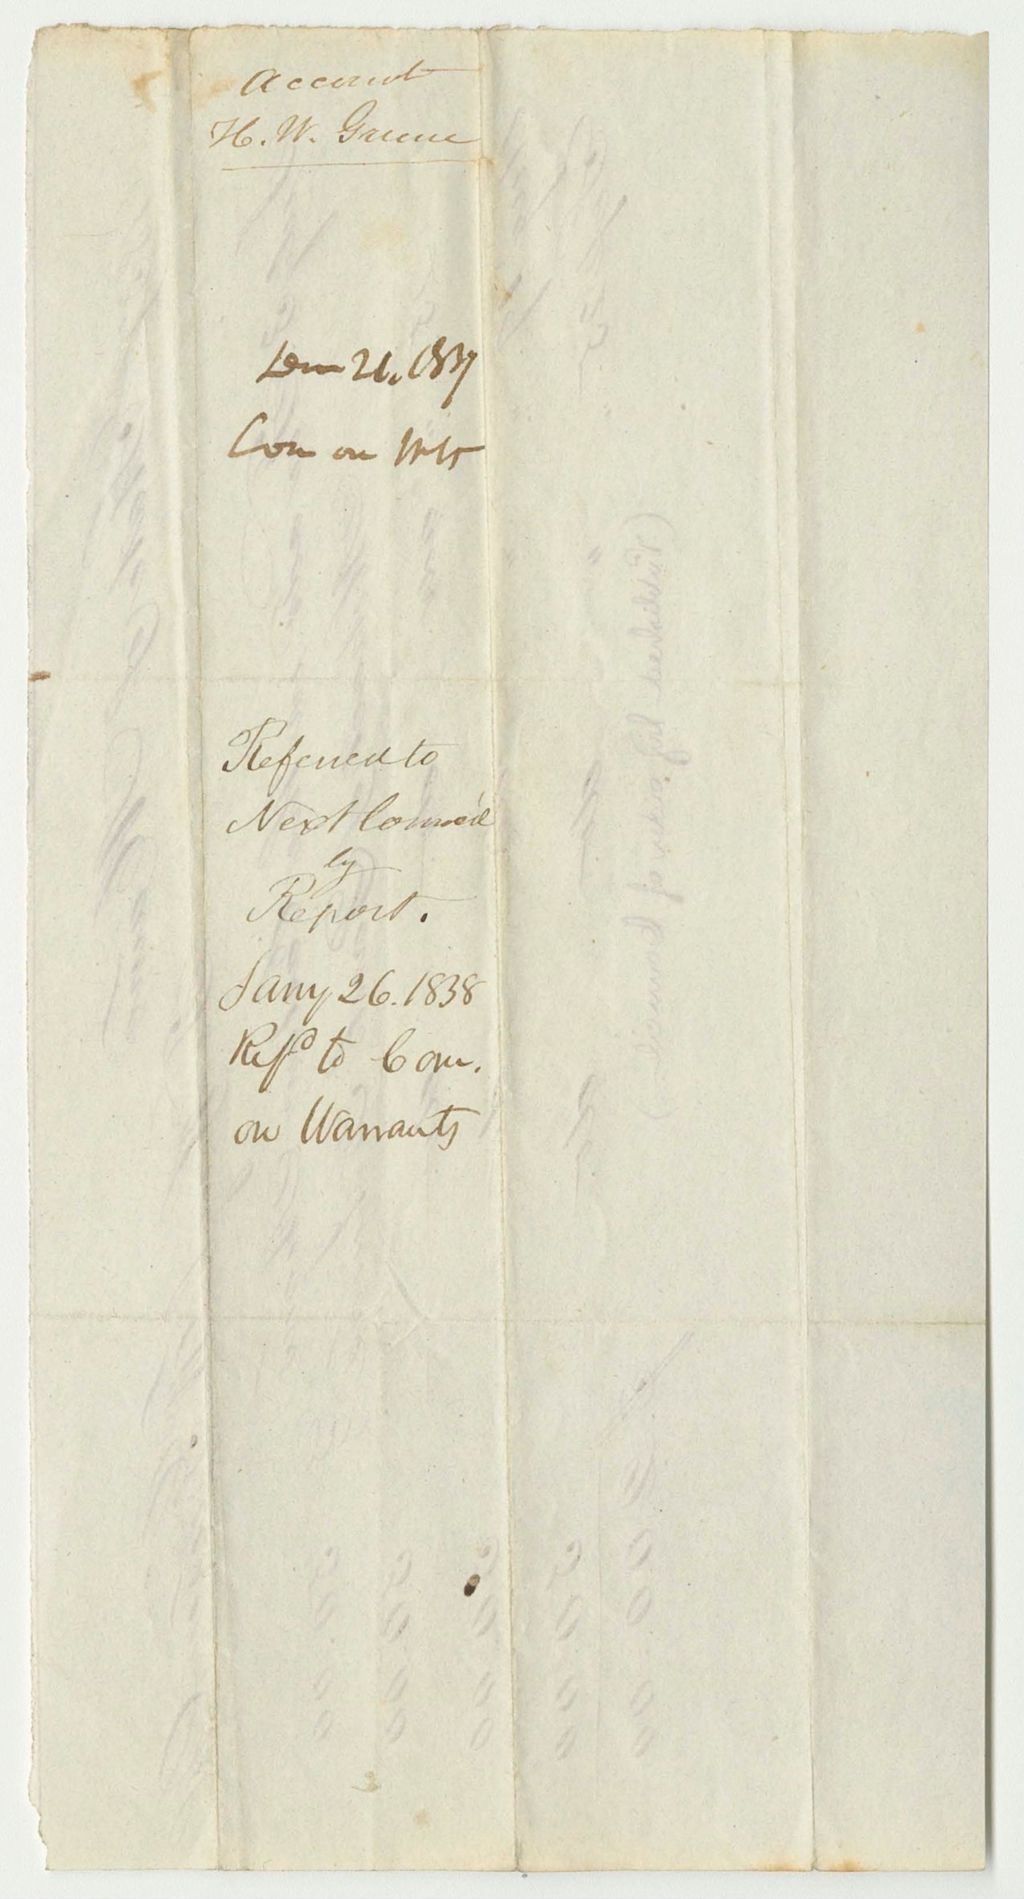 Account
H. W. Greene
21. 1837
Com on Wts
Referred to
Next Council
by
Report.
Jany 26. 1838
Refd to Com.
on Warrants